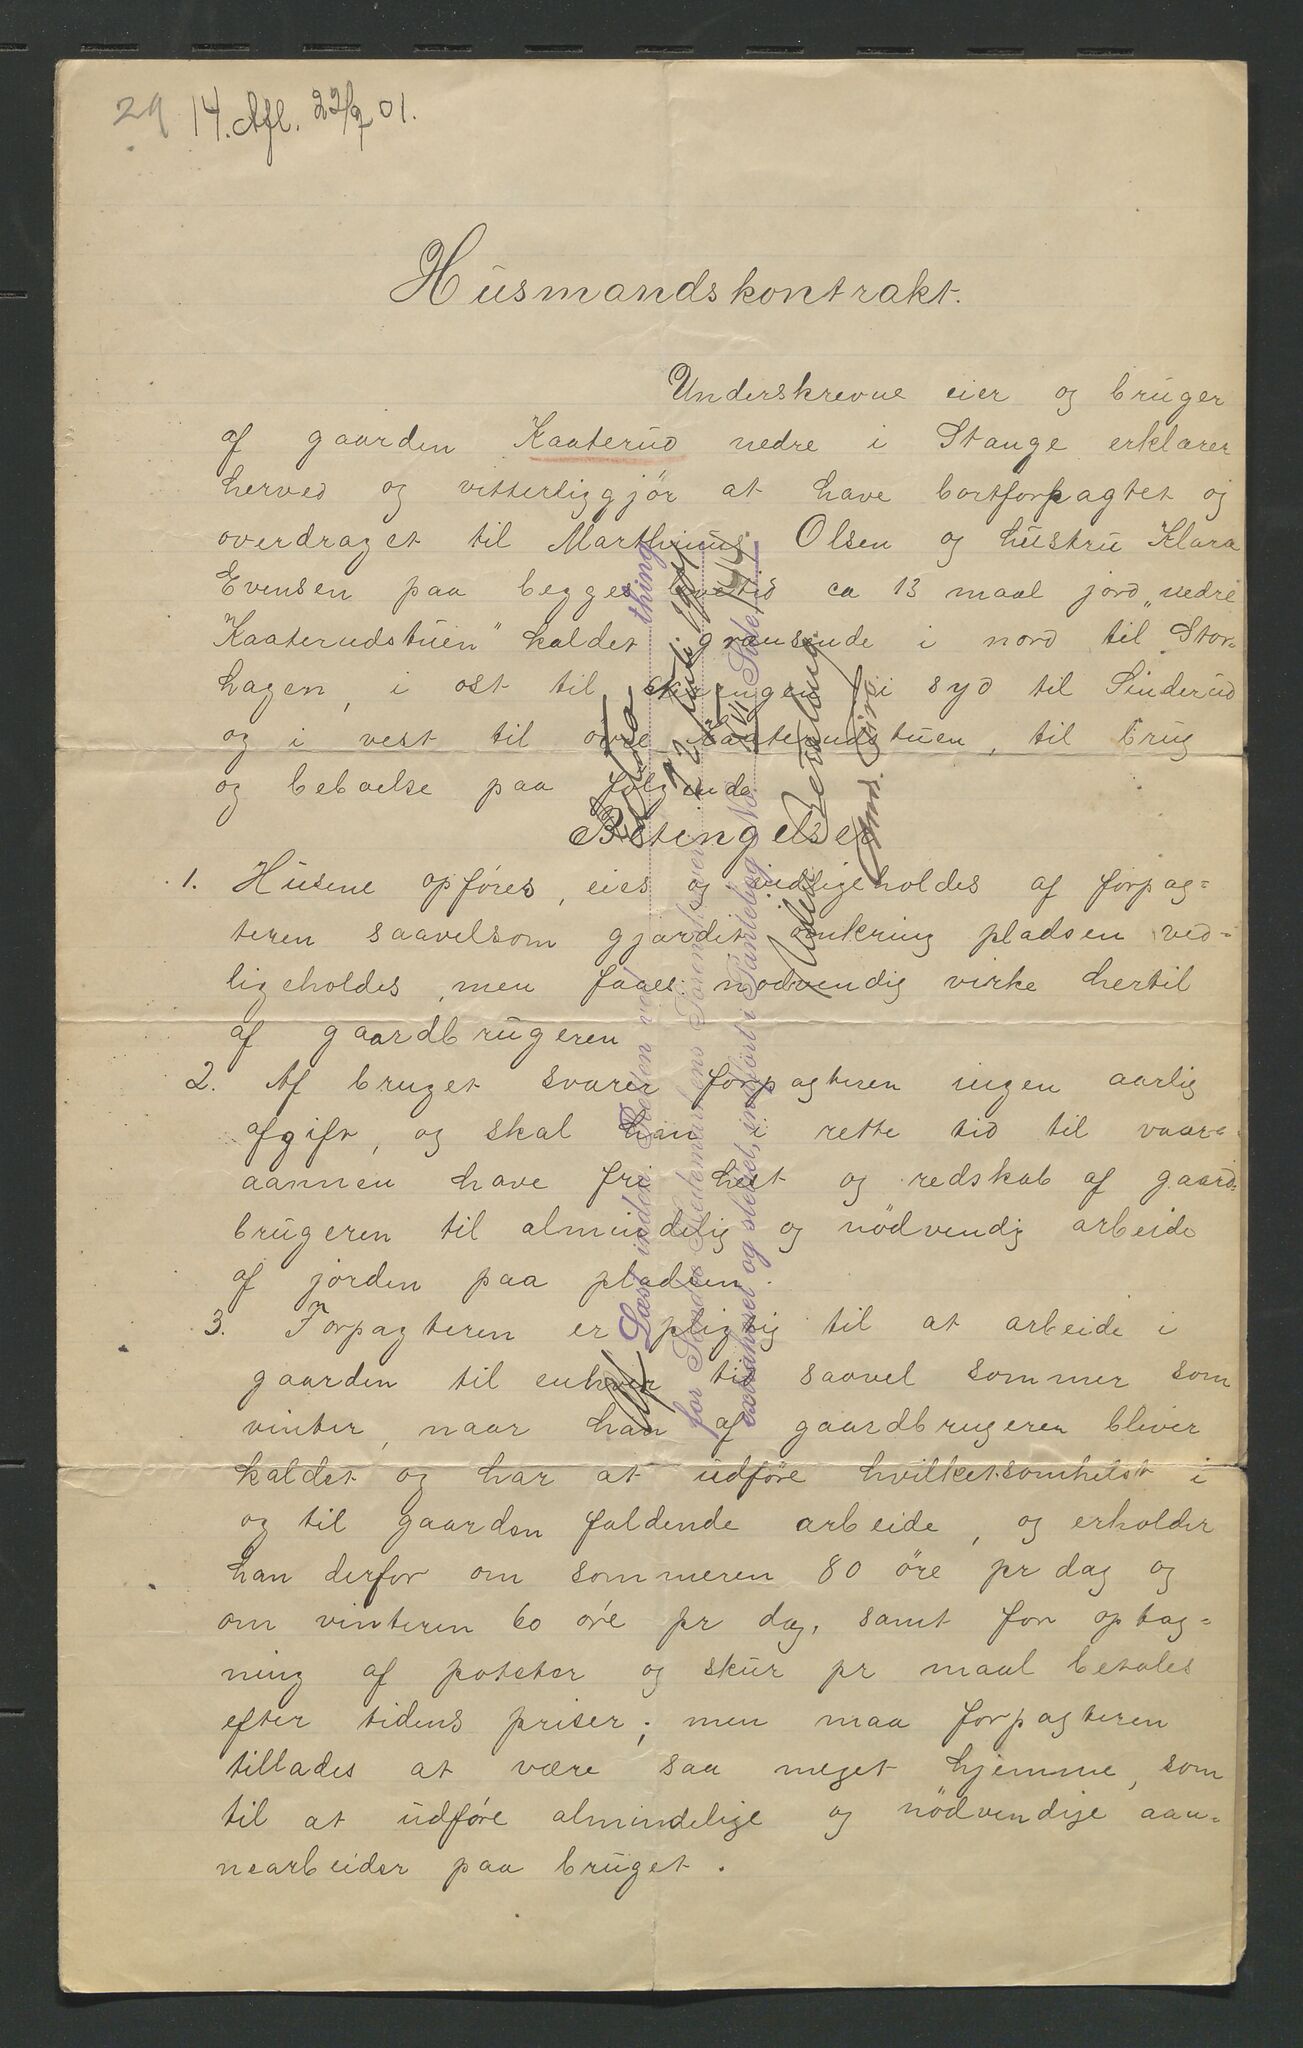 29 14. Afl. 22/7 01.
Husmandskontrakt.
Underskrevne eier og bruger
af gaarden Kaaterud nedre i Stange erklærer
herved og vitterliggjør at have bortforpagtet og
overdraget til Marthinus Olsen og hustru Klara
Evensen paa begges levetid ca 13 maal jord „nedre
Kaaterudstuen" kaldet grænsende i nord til Stor-
hagen, i øst til i syd til Sinderud
og i vest til øvre Kaaterudstuen, til brug
og beboelse paa følgende
Betingelser
1. Husene opføres, eies og vedligeholdes af forpag=
teren saavelsom gjærdet omkring pladsen ved-
ligeholdes, men faaes nødvendig virke hertil
af gaardbrugeren
2. Af bruget svarer forpagteren ingen aarlig
afgift, og skal han i rette tid til vaar-
aannen have fri hest og redskab af gaard-
brugeren til almindelig og nødvendig arbeide
af jorden paa pladsen.
3. Forpagteren er pligtig til at arbeide i
gaarden til enhver tid saavel sommer som
vinter, naar han af gaardbrugeren bliver
kaldet og har at udføre hvilketsomhelst i
og til gaarden faldende arbeide, og erholder
han derfor om sommeren 80 øre pr dag og
om vinteren 60 øre pr dag, samt for optag=
ning af poteter og skur pr maal betales
efter tidens priser; men maa forpagteren
tillades at være saa meget hjemme, som
til at udføre almindelige og nødvendige aan-
nearbeider paa bruget.
Læst inden Retten ved thing
for Søndre Hedemarkens Sorenskriveri
extraheret og sluttet, indført i Pantebog No. Side